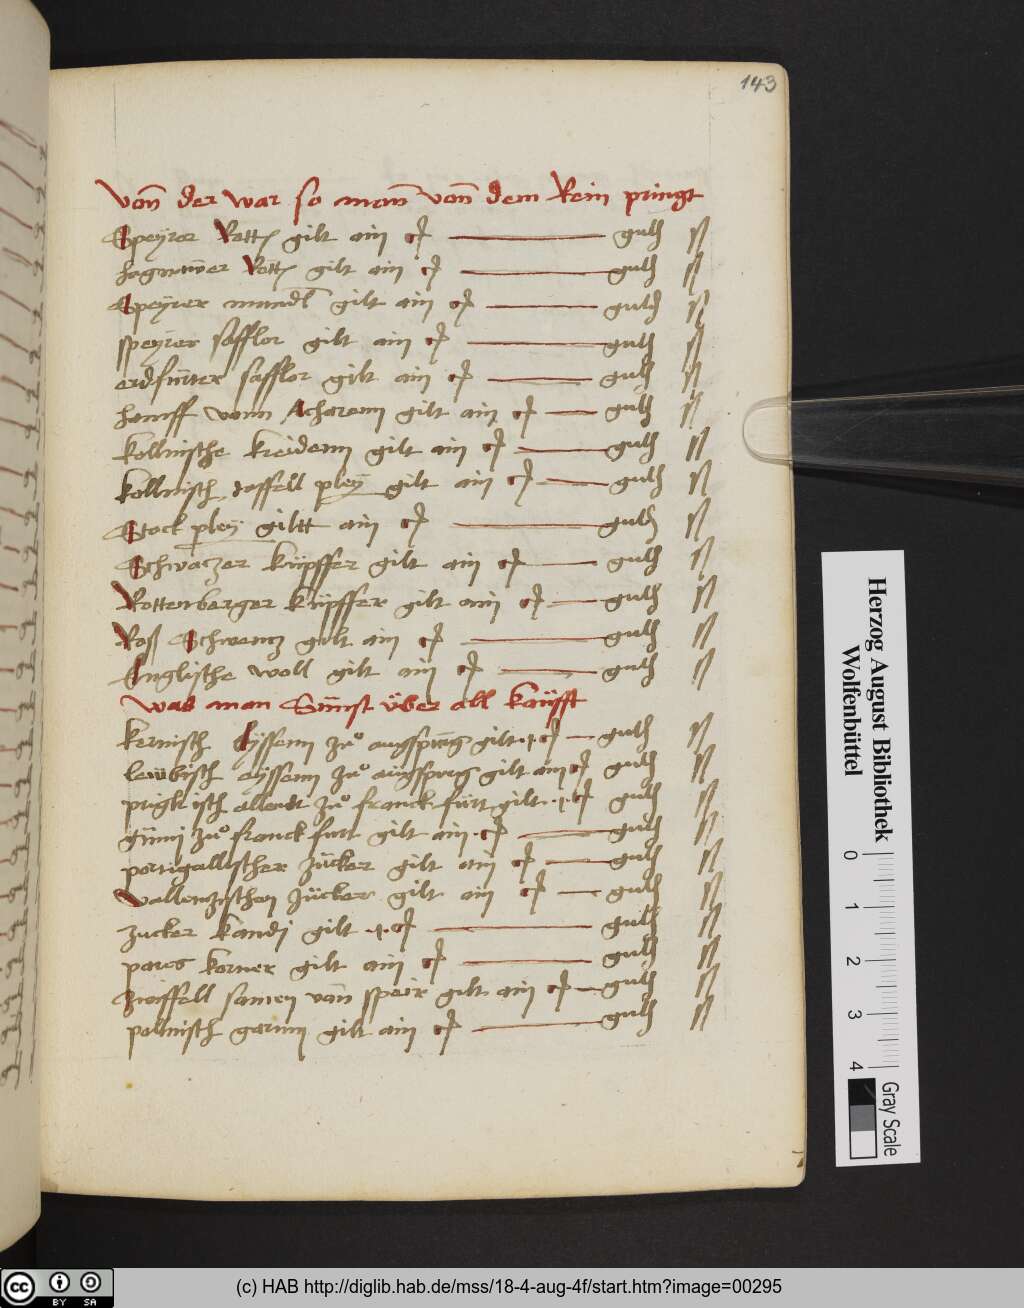 143
Vonn der war so mann vonn dem Rein pringt
Speyrer Rotte gilt ain guld ß
hagnower Rotte gilt ain guld ß
Speyrer mandl gilt ain guld ß
speyrer safflor gilt ain guld ß
erdfurter safflor gilt ain guld ß
hanff vonn Acharenn gilt ain guld ß
kollnische kreidenn gilt ain guld ß
kollnisch taffell pley gilt ain guld ß
Stock pley giltt ain guld ß
Schwaczer kupffer gilt ain guld ß
Rottenberger kupffer gilt ain guld ß
Roß Schwencz gilt ain guld ß
Englische woll gilt ain guld ß
was man Sunst über all kaüfft
kernisch Eyssenn zuo augspurg gilt .1. guld ß
leubisch eyssenn zuo augspurg gilt ain guld ß
allendt zuo franckfurt gilt .1. guld ß
gumi zuo franckfurt gilt ain guld ß
portigallischer zucker gilt ain guld ß
vallenczischen zucker gilt ain guld ß
zucker kandj gilt .1. guld ß
pares korner gilt ain guld ß
zwiffell samen vonn speir gilt ain guld ß
pollnisch garnn gilt ain guld ß
Herzog August Bibliothek
Wolfenbüttel
0 1 2 3 4
Gray Scale
cc BY SA
(c) HAB http://diglib.hab.de/mss/18-4-aug-4f/start.htm?image=00295